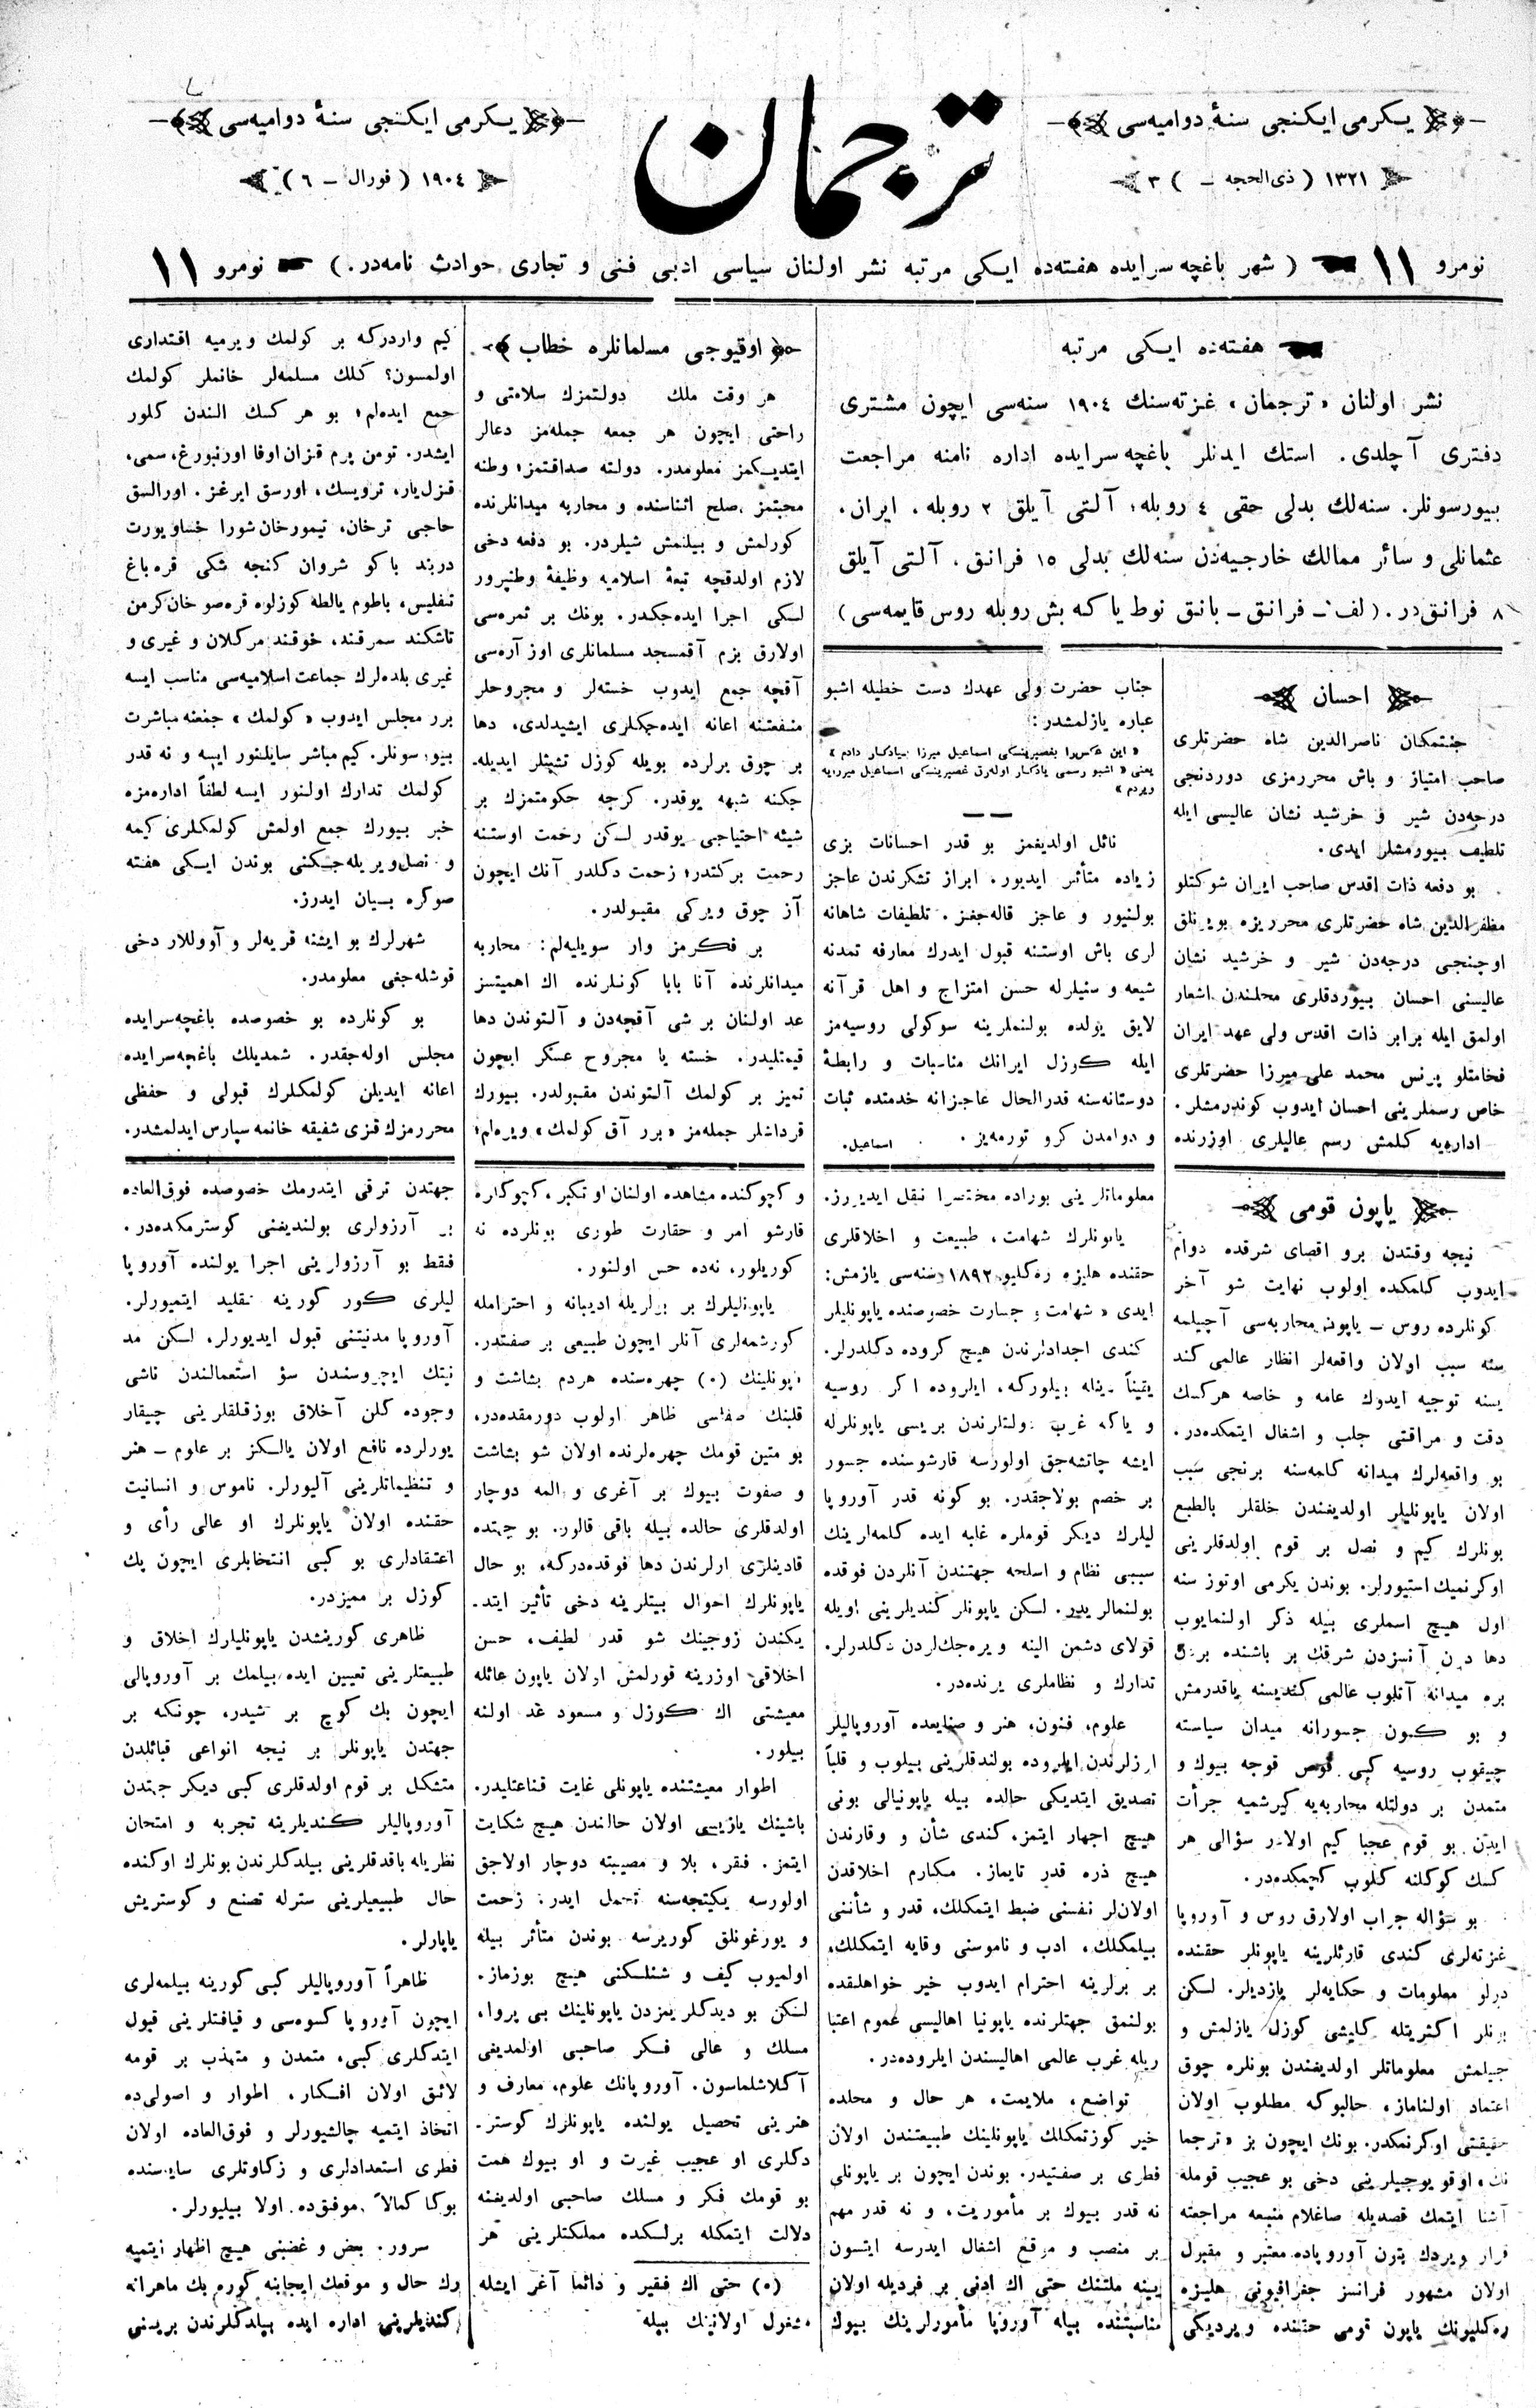 يكرمی ايكنجی سنهٔ دواميه‌سی
١٣٢١ ( ذی‌الحجه – ) ٣
ترجمان
يكرمی ايكنجی سنهٔ دواميه‌سی
١٩٠٤ ( فورال – ٦ )
نومرو ١١ ( شهر باغچه سرايده هفته‌ده ايكی مرتبه نشر اولنان سياسی ادبی فنی و تجاری حوادث نامه‌در. ) نومرو ١١
هفته‌ده ايكی مرتبه
نشر اولنان «ترجمان» غزته‌سنك ١٩٠٤ سنه‌سی ايچون مشتری
دفتری آچلدی. استك ايدنلر باغچه سرايده اداره نامنه مراجعت
بيورسونلر. سنه‌لك بدلی حقی ٤ روبله؛ آلتی آيلق ٢ روبله. ايران.
عثمانلی و سائر ممالك خارجيه‌دن سنه‌لك بدلی ١٥ فرانق. آلتی آيلق
٨ فرانق‌در. ( لف – فرانق – بانق نوط ياكه بش روبله روس قايمه‌سی )
احسان
جنتمكان ناصرالدين شاه حضرتلری
صاحب امتياز و باش محررمزی دوردنجی
درجه‌دن شير و خرشيد نشان عاليسی ايله
تلطيف بيورمشلر ايدی.
بو دفعه ذات اقدس صاحب ايران شوكتلو
مظفرالدين شاه حضرتلری محرريزه بويرنلق
اوچنجی درجه‌دن شير و خرشيد نشان
عاليسنی احسان بيوردقلری محلندن اشعار
اولمق ايله برابر ذات اقدس ولی عهد ايران
فخامتلو پرنس محمد علی ميرزا حضرتلری
خاص رسملرينی احسان ايدوب كوندرمشلر.
اداره‌يه كلمش رسم عاليلری اوزرنده
جناب حضرت ولی عهدك دست خطيله اشبو
عباره يازلمشدر:
«اين عكس‌را بغصپرينسكی اسماعيل ميرزا بيادكار دادم»
يعنی «اشبو رسمی يادكار اوله‌رق غصپرينسكی اسماعيل ميرزايه
ويردم»
نائل اولديغمز بو قدر احسانات بزی
زياده متأثر ايديور. ابراز تشكرندن عاجز
بولنيور و عاجز قاله‌جغز. تلطيفات شاهانه
لری باش اوستنه قبول ايدرك معارفه تمدنه
شيعه و سنيلرله حسن امتزاج و اهل قرآنه
لايق يولده بولنملرينه سوكولی روسيه‌مز
ايله كوزل ايرانك مناسبات و رابطهٔ
دوستانه‌سنه قدرالحال عاجزانه خدمتده ثبات
و دوامدن كرو تورمه‌يز. اسماعيل.
اوقيوجی مسلمانلره خطاب
هر وقت ملك دولتمزك سلامتی و
راحتی ايچون هر جمعه جمله‌مز دعالر
ايتديكمز معلومدر. دولته صداقتمز؛ وطنه
محبتمز صلح اثناسنده و محاربه ميدانلرنده
كورلمش و بيلنمش شيلردر. بو دفعه دخی
لازم اولدقچه تبعهٔ اسلاميه وظيفهٔ وطنپرور
لكی اجرا ايده‌جكدر. بونك بر ثمره‌سی
اولارق بزم آقمسجد مسلمانلری اوز آره‌سی
آقچه جمع ايدوب خسته‌لر و مجروحلر
منفعتنه اعانه ايده‌جكلری ايشيدلدی، دها
بر چوق يرلرده بويله كوزل تشبثلر ايديله‌
جكنه شبهه يوقدر. كرچه حكومتمزك بر
شيئه احتياجی يوقدر لكن رحمت اوستنه
رحمت بركتدر؛ زحمت دكلدر آنك ايچون
آز چوق ويركی مقبولدر.
بر فكرمز وار سويليه‌لم: محاربه
ميدانلرنده آنا بابا كونلرنده اك اهميتسز
عد اولنان بر شی آقچه‌دن و آلتوندن دها
قيمتليدر. خسته يا مجروح عسكر ايچون
تميز بر كولمك آلتوندن مقبولدر. بيورك
قرداشلر جمله‌مز «برر آق كولمك» ويره‌لم؛
كيم واردركه بر كولمك ويرميه اقتداری
اولمسون؟ كلك مسلمه‌لر خانملر كولمك
جمع ايده‌لم؛ بو هر كسك الندن كلور
ايشدر. تومن پرم قزان اوفا اورنبورغ، سمی،
قزل‌يار، ترويسك، اورسق ايرغز. اورالسق
حاجی ترخان، تيمورخان شورا خساويورت
دربند باكو شروان كنجه شكی قره‌باغ
تفليس، باطوم يالطه كوزلوه قره‌صو خان‌كرمن
تاشكند سمرقند، خوقند مركلان و غيری و
غيری بلده‌لرك جماعت اسلاميه‌سی مناسب ايسه
برر مجلس ايدوب «كولمك» جمعنه مباشرت
بيورسونلر. كيم مباشر سايلنور ايسه و نه قدر
كولمك تدارك اولنور ايسه لطفاً اداره‌مزه
خبر بيورك جمع اولمش كولمكلری كيمه
و نصل ويريله‌جكنی بوندن ايكی هفته
صوكره بيان ايدرز.
شهرلرك بو ايشنه قريه‌لر و آووللار دخی
قوشله‌جغی معلومدر.
بو كونلرده بو خصوصده باغچه‌سرايده
مجلس اوله‌جقدر. شمديلك باغچه‌سرايده
اعانه ايديلن كولمكلرك قبولی و حفظی
محررمزك قزی شفيقه خانمه سپارس ايدلمشدر.
ياپون قومی
نيجه وقتدن برو اقصای شرقده دوام
ايدوب كلمكده اولوب نهايت شو آخر
كونلرده روس – ياپون محاربه‌سی آچيلمه
سنه سبب اولان واقعه‌لر انظار عالمی كند
يسنه توجيه ايدوك عامه و خاصه هركسك
دقت و مراقتی جلب و اشغال ايتمكده‌در.
بو واقعه‌لرك ميدانه كلمه‌سنه برنجی سبب
اولان ياپونليلر اولديغندن خلقلر بالطبع
بونلرك كيم و نصل بر قوم اولدقلرينی
اوكرنميك استيورلر. بوندن يكرمی اوتوز سنه
اول هيچ اسملری بيله ذكر اولنمايوب
دها دون آنسزدن شرقك بر باشنده بردن
بره ميدانه آتلوب عالمی كنديسنه باقدرمش
و بو كون جسورانه ميدان سياسته
چيقوب روسيه كبی قوجه بيوك و
متمدن بر دولتله محاربه‌يه كيرشميه جرأت
ايدن بو قوم عجبا كيم اولالر سؤالی هر
كسك كوكلنه كلوب كچمكده‌در.
بو سؤاله جواب اولارق روس و آوروپا
غزته‌لری كندی قارئلرينه ياپونلر حقنده
درلو معلومات و حكايه‌لر يازديلر. لكن
بونلر اكثريتله كليشی كوزل يازلمش و
جيلمش معلوماتلر اولديغندن بونلره چوق
اعتماد اولنماز، حالبوكه مطلوب اولان
حقيقتی اوكرنمكدر. بونك ايچون بز «ترجما
نك» اوقويوجيلرينی دخی بو عجيب قومله
آشنا ايتمك قصديله صاغلام منبعه مراجعته
قرار ويردك بتون آوروپاده معتبر و مقبول
اولان مشهور فرانسز جغرافيونی هليزه
ره‌كليونك ياپون قومی حقنده ويرديكی
معلوماتلرينی بوراده مختصرا نقل ايديرز.
ياپونلرك شهامت، طبيعت و اخلاقلری
حقنده هليزه ره‌كليو ١٨٩٢ سنه‌سی يازمش:
ايدی «شهامت و جسارت خصوصنده ياپونليلر
كندی اجدادلرندن هيچ كروده دكلدرلر.
يقيناً دينله بيلوركه، ايلروده اكر روسيه
و ياكه غرب دولتلرندن بريسی ياپونلرله
ايشه چاتشه‌جق اولورسه قارشوسنده جسور
بر خصم بولاجقدر. بو كونه قدر آوروپا
ليلرك ديكر قوملره غلبه ايده كلمه‌لرينك
سببی نظام و اسلحه جهتندن آنلردن فوقده
بولنمالريدر. لكن ياپونلر كنديلرينی اويله
قولای دشمن الينه ويره‌جك‌لردن دكلدرلر.
تدارك و نظاملری يرنده‌در.
علوم، فنون، هنر و صنايعده آوروپاليلر
اوزلرندن ايلروده بولندقلرينی بيلوب و قلباً
تصديق ايتديكی حالده بيله ياپونيالی بونی
هيچ اجهار ايتمز، كندی شأن و وقارندن
هيچ ذره قدر تايماز. مكارم اخلاقدن
اولان‌لر نفسنی ضبط ايتمكلك، قدر و شأننی
بيلمكلك، ادب و ناموسنی وقايه ايتمكلك،
بر برلرينه احترام ايدوب خير خواهلقده
بولنمق جهتلرنده ياپونيا اهاليسی عموم اعتبا
ريله غرب عالمی اهاليسندن ايلروده‌در.
تواضع، ملايمت، هر حال و محلده
خير كوزتمكلك ياپونلينك طبيعتندن اولان
فطری بر صفتيدر. بوندن ايچون بر ياپونلی
نه قدر بيوك بر مأموريت، و نه قدر مهم
بر منصب و موقع اشغال ايدرسه ايتسون
يينه ملتنك حتی اك ادنی بر فرديله اولان
مناسبتنده بيله آوروپا مأمورلرينك بيوك
و كچوكنده مشاهده اولنان او تكبر، كچوكلره
قارشو امر و حقارت طوری بونلرده نه
كوريلور، نه‌ده حس اولنور.
ياپونليلرك بر برلريله اديبانه و احترامله
كورشمه‌لری آنلر ايچون طبيعی بر صفتدر.
ياپونلينك (٥) چهره‌سنده هردم بشاشت و
قلبنك صفاسی ظاهر اولوب دورمقده‌در.
بو متين قومك چهره‌لرنده اولان شو بشاشت
و صفوت بيوك بر آغری و المه دوچار
اولدقلری حالده بيله باقی قالور. بو جهتده
قادينلری ارلرندن دها فوقده‌دركه، بو حال
ياپونلرك احوال بيتلرينه دخی تأثير ايتد‌
يكندن زوجينك شو قدر لطيف، حسن
اخلاقی اوزرينه قورلمش اولان ياپون عائله
معيشتی اك كوزل و مسعود عد اولنه
بيلور.
اطوار معيشتنده ياپونلی غايت قناعتليدر.
باشينك يازيسی اولان حالندن هيچ شكايت
ايتمز. فقر، بلا و مصيبته دوچار اولاجق
اولورسه يكيتجه‌سنه تحمل ايدر. زحمت
و يورغونلق كوريرسه بوندن متأثر بيله
اولميوب كيف و شنلكنی هيچ بوزماز.
لكن بو ديدكلريمزدن ياپونلينك بی پروا،
مسلك و عالی فكر صاحبی اولمديغی
آكلاشلماسون. آوروپانك علوم، معارف و
هنرينی تحصيل يولنده ياپونلرك كوستر‌
دكلری او عجيب غيرت و او بيوك همت
بو قومك فكر و مسلك صاحبی اولديغنه
دلالت ايتمكله برلكده مملكتلرينی هر
(٥) حتی اك فقير و دائما آغر ايشله
مشغول اولانينك بيله
جهتدن ترقی ايتدرمك خصوصده فوق‌العاده
بر آرزولری بولنديغنی كوسترمكده‌در.
فقط بو آرزولرينی اجرا يولنده آوروپا
ليلری كور كورينه تقليد ايتميورلر.
آوروپا مدنيتنی قبول ايديورلر، لكن مد
نيتك ايچروسندن سؤ استعمالندن ناشی
وجوده كلن آخلاق بوزقلقلرينی چيقار
يورلرده نافع اولان يالكز بر علوم – هنر
و تنظيماتلرينی آليورلر. ناموس و انسانيت
حقنده اولان ياپونلرك او عالی رأی و
اعتقادلری بو كبی انتخابلری ايچون پك
كوزل بر مميزدر.
ظاهری كورينشدن ياپونليلرك اخلاق و
طبيعتلرينی تعيين ايده بيلمك بر آوروپالی
ايچون بك كوچ بر شيدر، چونكه بر
جهتدن ياپونلر بر نيجه انواعی قبائلدن
متشكل بر قوم اولدقلری كبی ديكر جهتدن
آوروپاليلر كنديلرينه تجربه و امتحان
نظريله باقدقلرينی بيلدكلرندن بونلرك اوكنده
حال طبيعيلرينی سترله تصنع و كوستريش
ياپارلر.
ظاهراً آوروپاليلر كبی كورينه بيلمه‌لری
ايچون آوروپا كسوه‌سی و قيافتلرينی قبول
ايتدكلری كبی، متمدن و متهذب بر قومه
لائق اولان افكار، اطوار و اصولی‌ده
اتخاذ ايتميه چالشيورلر و فوق‌العاده اولان
فطری استعدادلری و زكاوتلری سايه‌سنده
بوكا كمالاً موفق‌ده اولا بيليورلر.
سرور، بغض و غضبنی هيچ اظهار ايتميه
رك حال و موقعك ايجابنه كوره بك ماهرانه
كنديلرينی اداره ايده بيلدكلرندن بريسنی